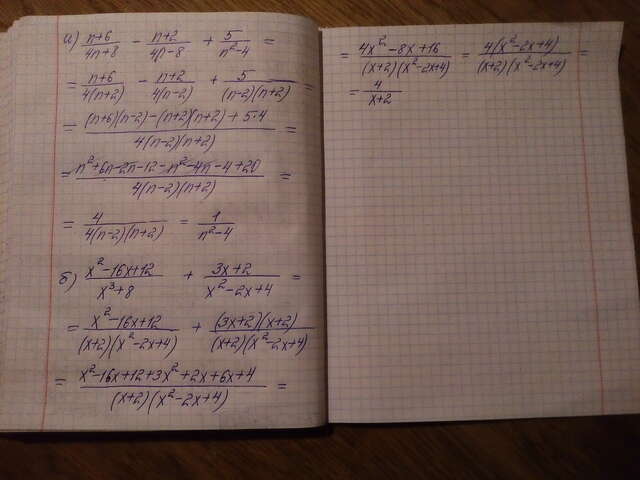 а) (n+6)/(4n+8) - (n+2)/(4n-8) + 5/(n²-4) =
= (n+6)/(4(n+2)) - (n+2)/(4(n-2)) + 5/((n-2)(n+2)) =
= ((n+6)(n-2)-(n+2)(n+2)+5·4)/(4(n-2)(n+2)) =
= (n²+6n-2n-12-n²-4n-4+20)/(4(n-2)(n+2)) =
= 4/(4(n-2)(n+2)) = 1/(n²-4)
б) (x²-16x+12)/(x³+8) + (3x+2)/(x²-2x+4) =
= (x²-16x+12)/((x+2)(x²-2x+4)) + ((3x+2)(x+2))/((x+2)(x²-2x+4))
= (x²-16x+12+3x²+2x+6x+4)/((x+2)(x²-2x+4)) =
= (4x²-8x+16)/((x+2)(x²-2x+4)) = (4(x²-2x+4))/((x+2)(x²-2x+4)) =
= 4/(x+2)